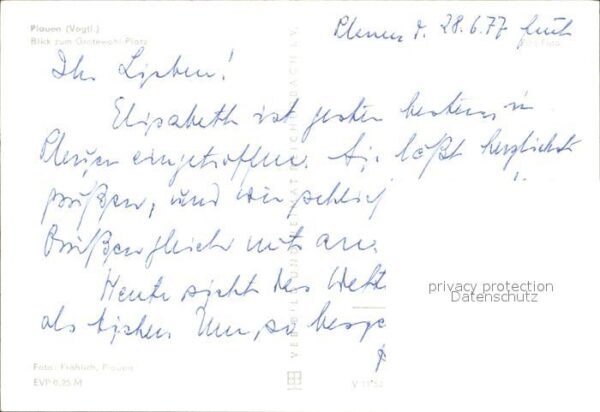 Plauen (Vogtl.)
Blick zum Grotewohl-Platz
Plauen d. 28.6.77 früh
Ihr Lieben!
Elisabeth ist gestern bestens in
Plauen eingetroffen. Sie läßt herzlichst
grüßen, und wir schließ
Grüßen gleich mit an.
Heute sieht das Wett
als
privacy protection
Datenschutz
Foto: Fröhlich, Plauen
EVP 0,25 M
VEB BILD UND HEIMAT REICHENBACH I. V.